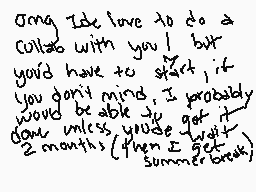 omg Ide love to do a
cullab with you! but
you'd have to start, if
you don't mind, I probably
would be able to get it
done unless you'de wait
2 months (then I get
summer break)